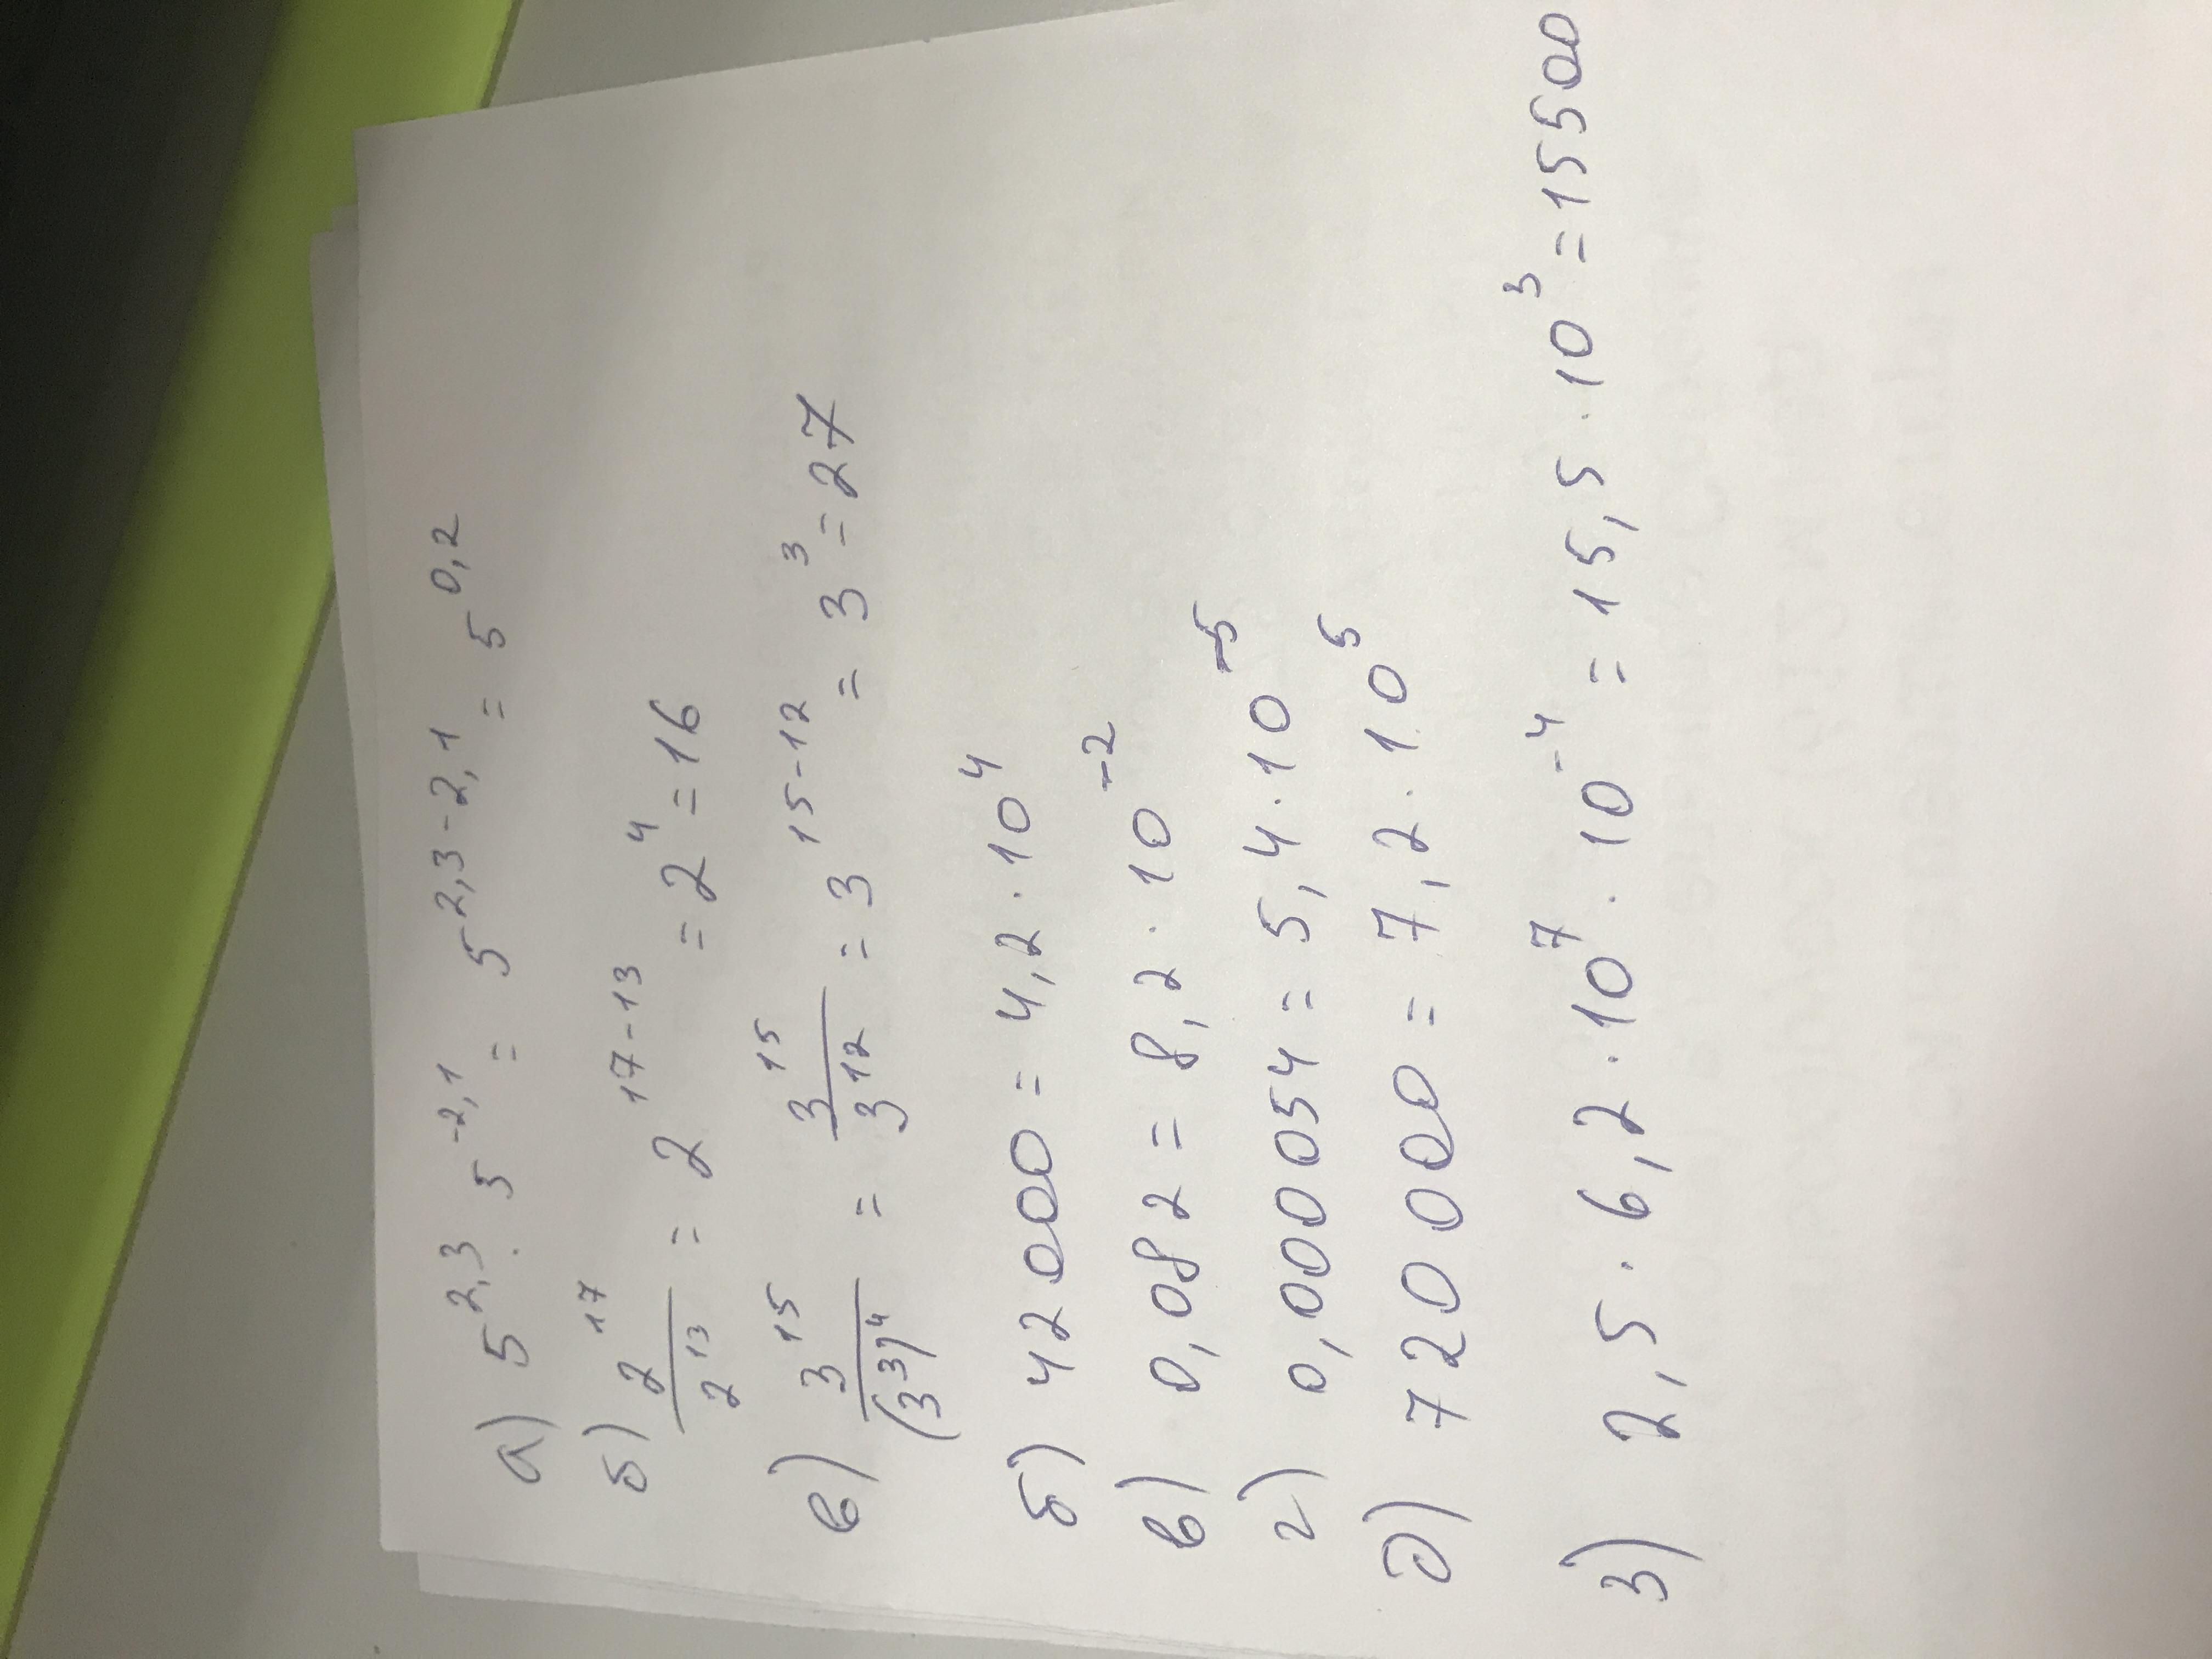 а) 5^{2,3} · 5^{-2,1} = 5^{2,3-2,1} = 5^{0,2}
б) \frac{2^{17}}{2^{13}} = 2^{17-13} = 2^4 = 16
в) \frac{3^{15}}{(3^3)^4} = \frac{3^{15}}{3^{12}} = 3^{15-12} = 3^3 = 27
б) 42 000 = 4,2 · 10^4
в) 0,082 = 8,2 · 10^{-2}
г) 0,000 054 = 5,4 · 10^{-5}
д) 720 000 = 7,2 · 10^5
3) 2,5 · 6,2 · 10^7 · 10^{-4} = 15,5 · 10^3 = 15500